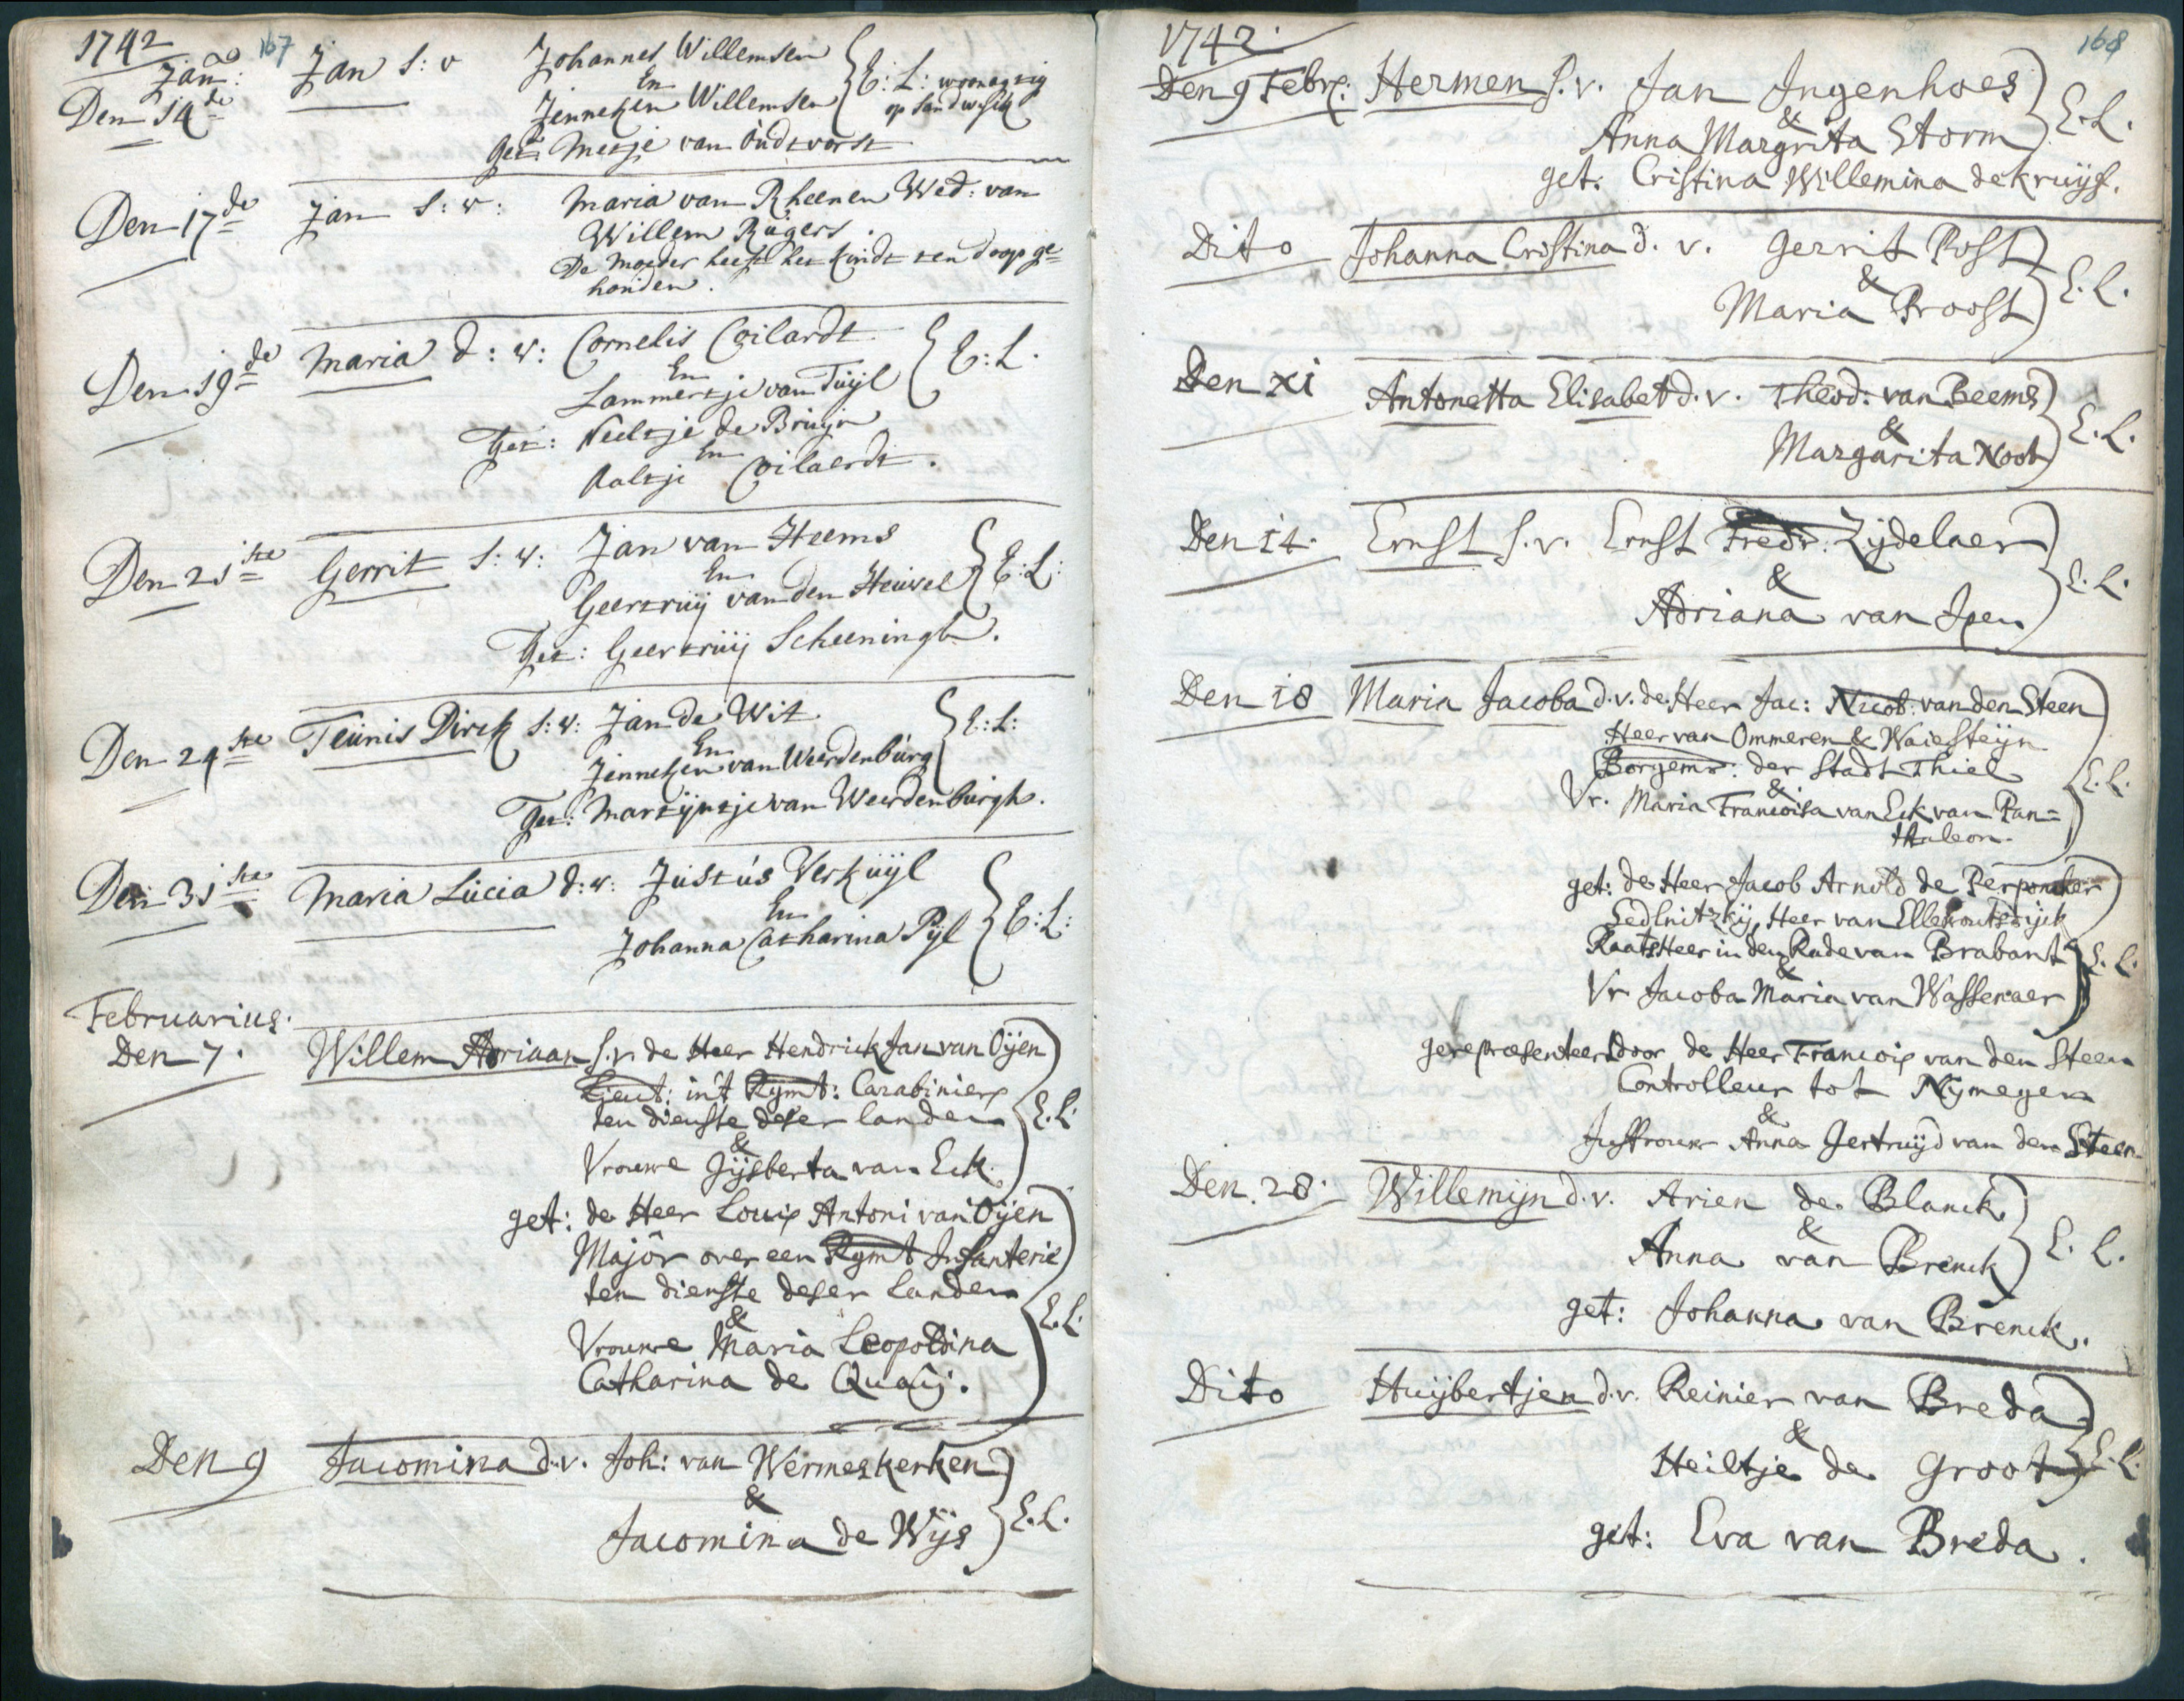 1742 167
Jan:
Den 14de Jan S: v Johannes Willemsen
En
Jenneken Willemsen E: L: woonagtig op Sandwijk
Get: Metje van Oudtvorst
Den 17de Jan S: v: Maria van Rheenen Wed: van
Willem Rugers.
De Moeder heeft het kindt ten doop ge=
houden.
Den 19de Maria d: v: Cornelis Coilardt
En
Lammertje van Tuÿl E: L.
Get: Neeltje de Bruÿn
En
Aaltje Coilaerdt.
Den 21ste Gerrit S: v: Jan van Heems
En
Geertruÿ van den Heuvel E: L:
Get: Geertruÿ Scheeningh.
Den 24ste Teunis Dirck S: v: Jan de Wit
En
Jenneken van Weerdenburg E: L:
Get: Martÿntje van Weerdenburgh.
Den 31ste Maria Lucia d: v: Justus Verkuÿl
En
Johanna Catharina Pÿl E: L:
Februarius.
Den 7. Willem Adriaan S. v. de Heer Hendrick Jan van Oÿen
Lieut: in't Rgmt: Carabiniers
ten dienste deser landen
& E. L.
Vrouwe Gÿsberta van Eck.
get: de Heer Louis Antoni van Oÿen
Majôr over een Rgmt Infanterie
ten dienste deser Landen
& E. L.
Vrouwe Maria Leopoldina
Catharina de Quaÿ.
Den 9 Jacomina d. v. Joh: van Wermeskerken
&
Jacomina de Wÿs E. L.
1742. 168
Den 9 Febr: Hermen S. v. Jan Ingenhoes
&
Anna Margrita Storm E. L.
get: Cristina Willemina de Kruÿf.
Dito Johanna Cristina d. v. Gerrit Post
&
Maria Proost E. L.
Den XI Antonetta Elisabet d. v. Theod: van Beems
&
Margarita Noot E. L.
Den 14. Ernst S. v. Ernst Fredr. Zÿdelaer
&
Adriana van Ipen E. L.
Den 18 Maria Jacoba d. v. de Heer Jac: Nicol: van den Steen
Heer van Ommeren & Waiesteÿn
Borgemr: der Stadt Thiel
& E. L.
Vr. Maria Francoisa van Eck van Pan=
thaleon.
get: de Heer Jacob Arnold de Perponcher
Sedlnitzkÿ, Heer van Ellewoutsdÿck
Raats Heer in den Rade van Brabant
& E. L.
Vr Jacoba Maria van Wassenaer
gerepresenteert door de Heer Francois van den Steen
Controlleur tot Nÿmegen
&
Juffrouw Anna Gertruÿd van den Steen
Den 28. Willemÿn d. v. Arien de Blanck
&
Anna van Brenck E. L.
get: Johanna van Brenck.
Dito Huÿbertjen d. v. Reinier van Breda
&
Heiltje de Groot E. L.
get: Eva van Breda.